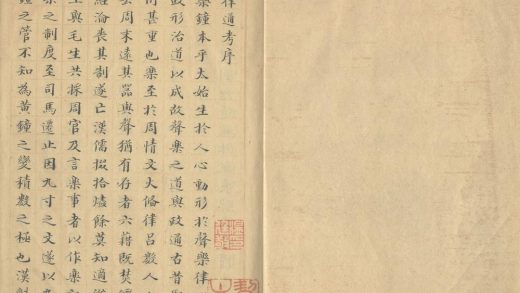 律通考序
樂鐘本乎大始生於人心動形於聲樂律
政形治道以成故聲樂之道與政通古昔
甚重也樂至於周情文大備律呂數人
去周末遠其器與聲猶有存者六藉既焚
經淪喪其制遂亡漢儒掇拾燼餘莫知適
王與毛生共採周官及言樂事者以作樂
樂之制度至司馬遷止因九寸之文遂以
鐘之管不知為黃鐘之變積數之極也漢